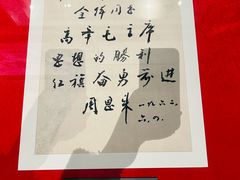 全体同志
高举毛主席
思想的胜利
红旗奋勇前进
周恩来一九六二
六.